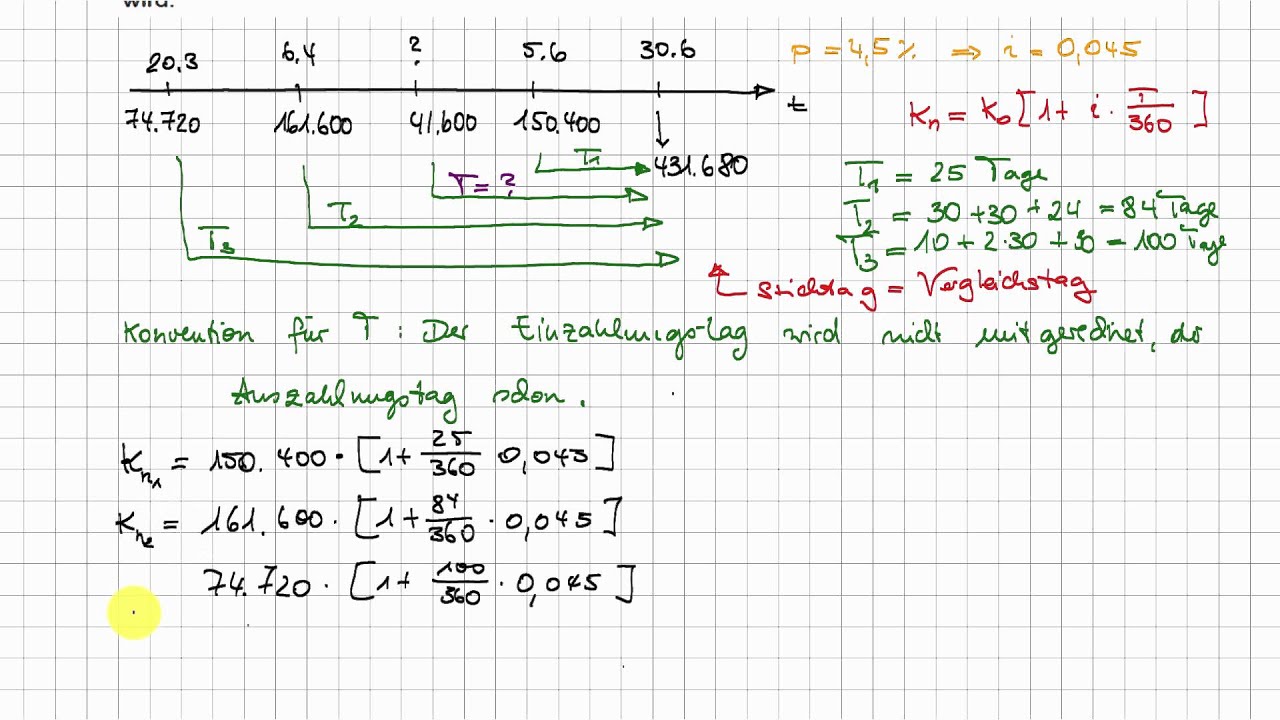 wird.
20.3 6.4 ? 5.6 30.6
t
74.720 161.600 41.600 150.400
431.680
T1
T = ?
T2
T3
p = 4,5% ⇒ i = 0,045
Kn = K0 [1 + i · T/360]
T1 = 25 Tage
T2 = 30 + 30 + 24 = 84 Tage
T3 = 10 + 2·30 + 30 = 100 Tage
Stichtag = Vergleichstag
Konvention für T : Der Einzahlungstag wird nicht mitgerechnet, der
Auszahlungstag schon.
Kn1 = 150.400 · [1 + 25/360 · 0,045]
Kn2 = 161.600 · [1 + 84/360 · 0,045]
74.720 · [1 + 100/360 · 0,045]